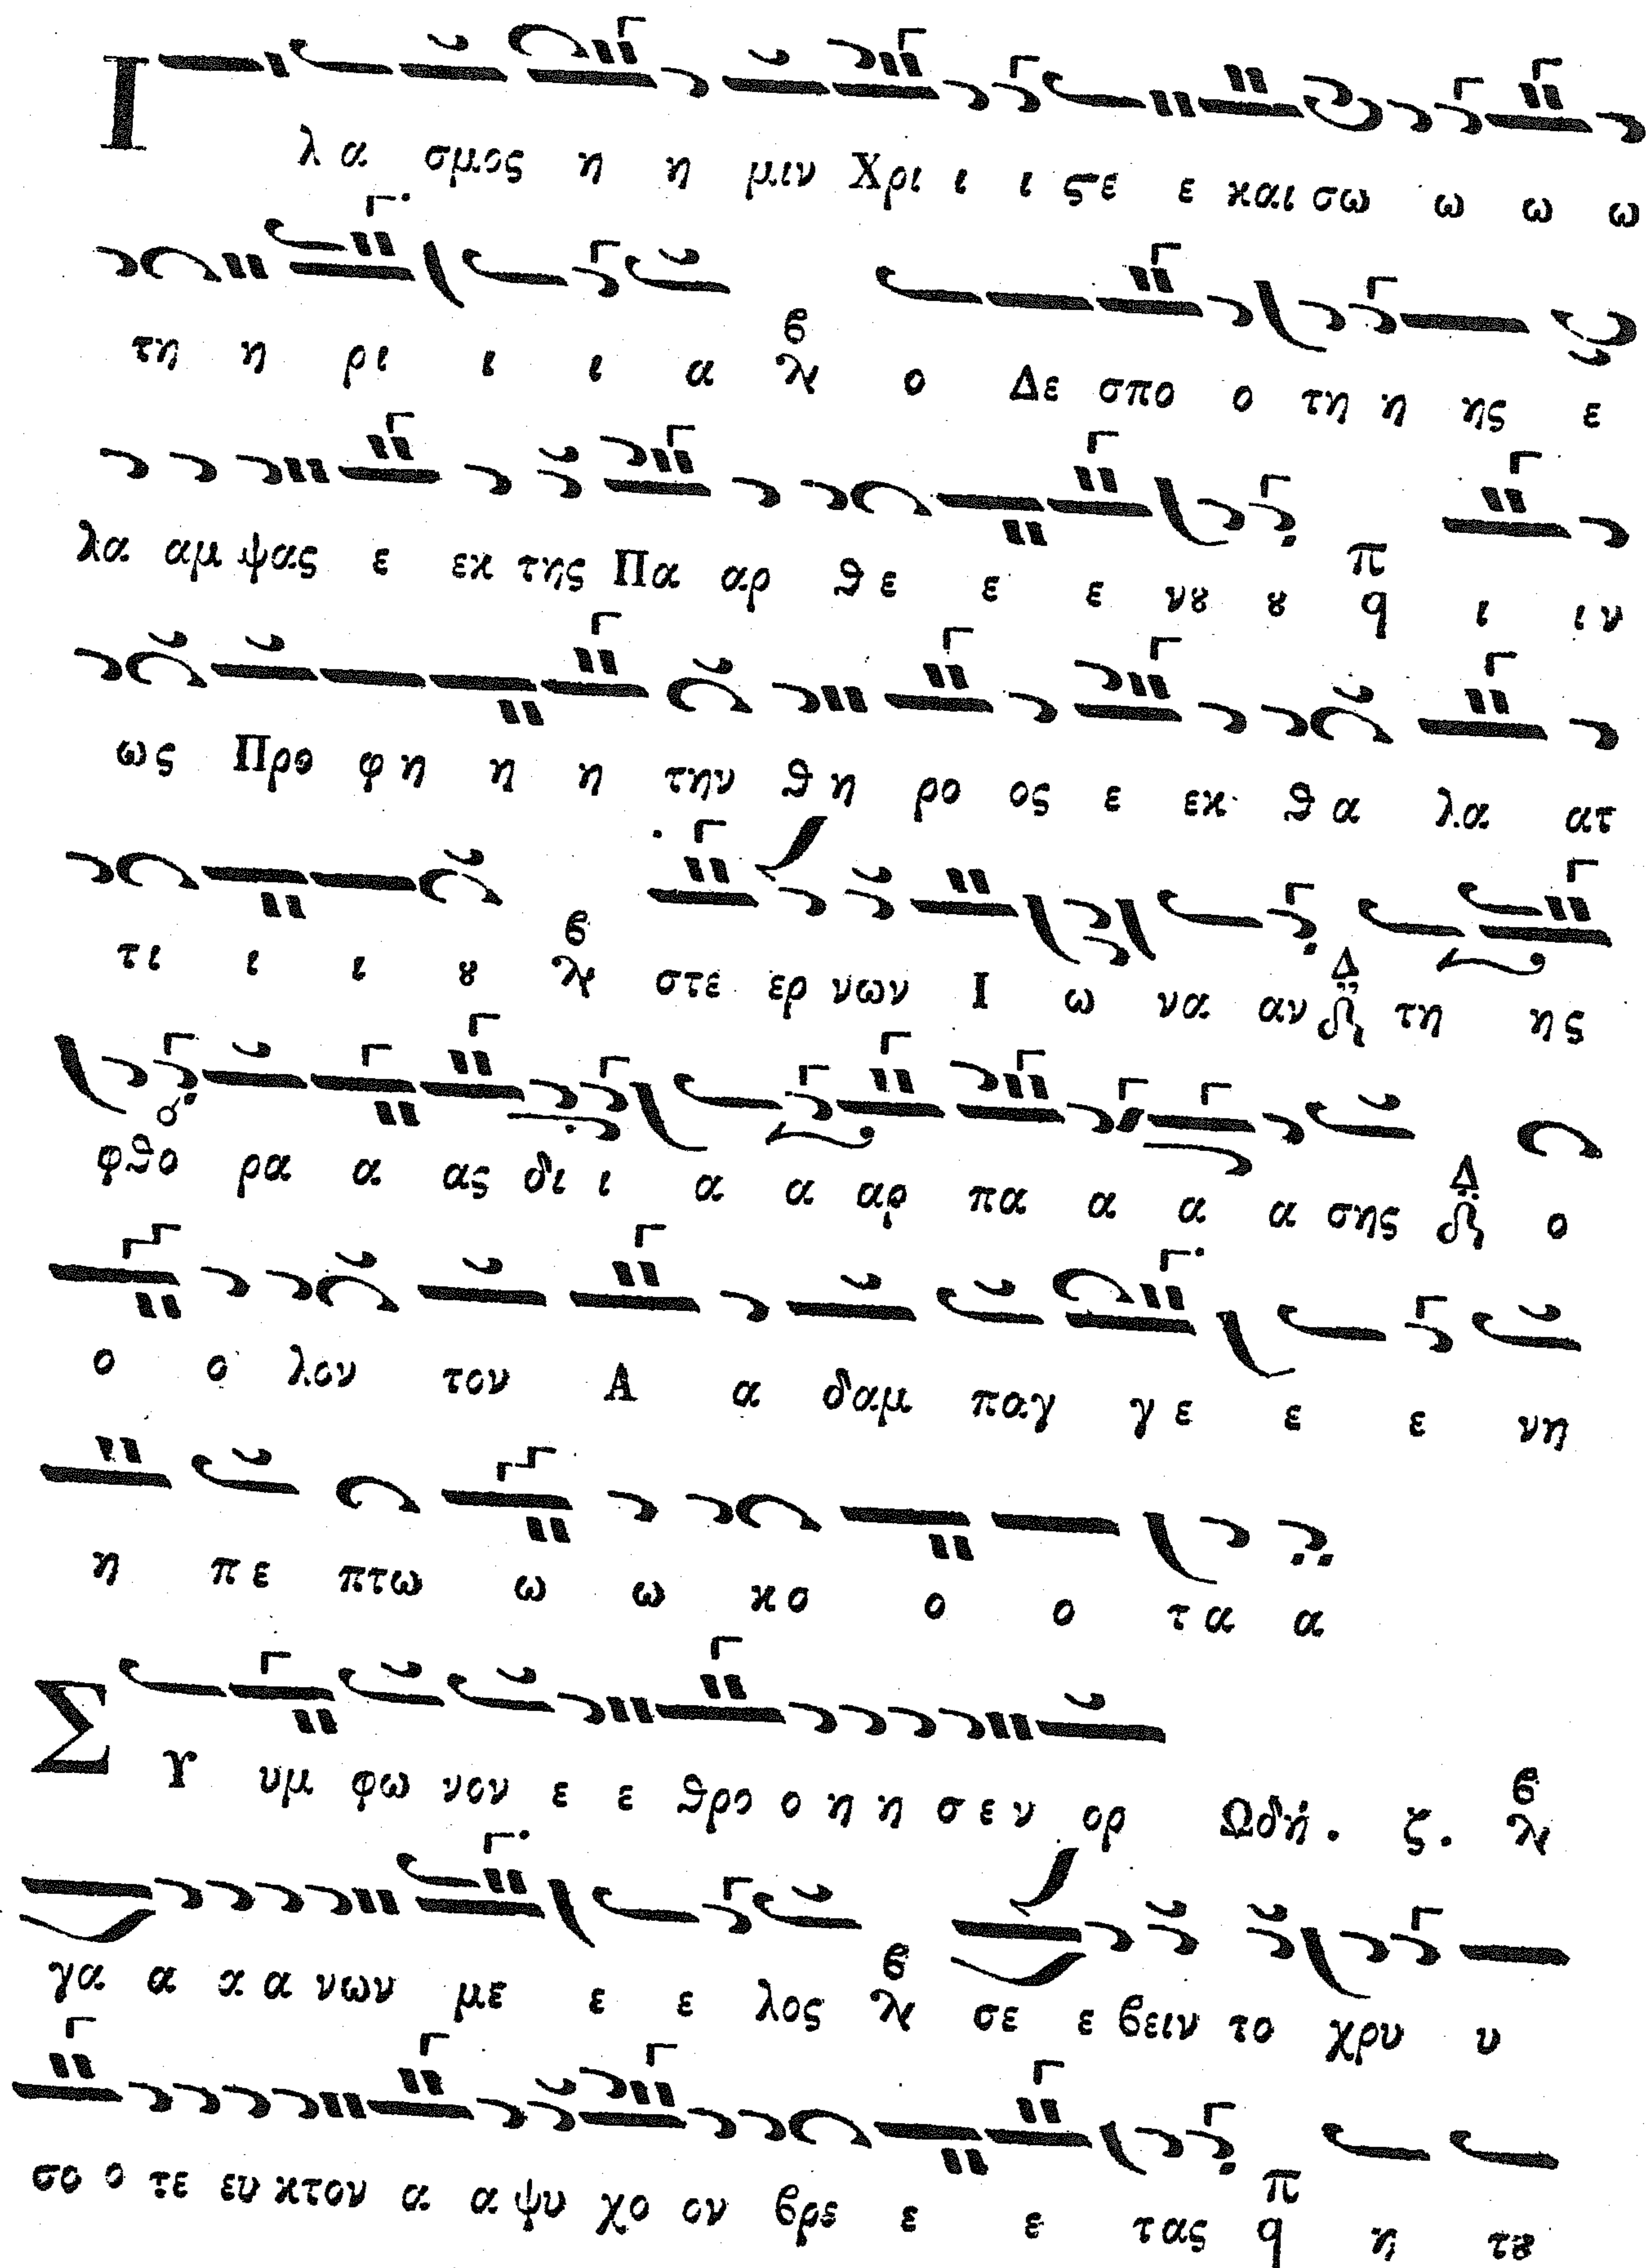 Ι λα σμος η η μιν Χρι ι ι ςε ε και σω ω ω ω
τη η ρι ι ι α ϐ ο Δε σπο ο τη η ης ε
λα αμ ψας ε εκ της Πα αρ θε ε ε νȣ ȣ π q ι ιν
ως Προ φη η η την θη ρο ος ε εκ θα λα ατ
τι ι ι ȣ ϐ στε ερ νων Ι ω να αν Δ τη ης
φθο ρα α ας δι ι α α αρ πα α α α σης Δ ο
ο ο λον τον Α α δαμ παγ γε ε ε νη
η πε πτω ω ω κο ο ο τα α
Σ Υ υμ φω νον ε ε θρο ο η η σεν ορ Ωδή. ζ. ϐ
γα α α α νων με ε ε λος ϐ σε ε ϐειν το χρυ υ
σο ο τε ευ κτον α α ψυ χο ον ϐρε ε ε τας π q η τȣ